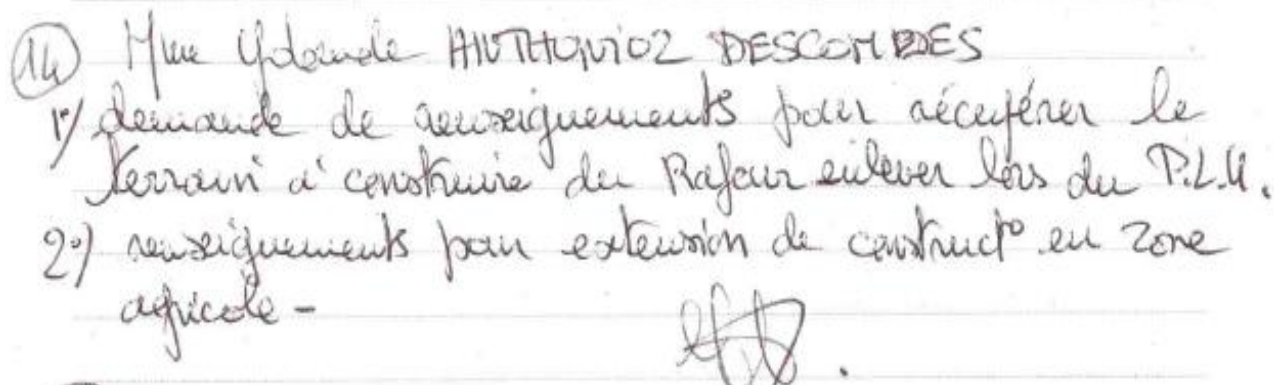 14 Mme Yolande ANTHONIOZ DESCOMBES
1°/ demande de renseignements pour récupérer le
terrain à construire du Rafour enlever lors du P.L.U.
2°) renseignements pour extension de construct° en zone
agricole -